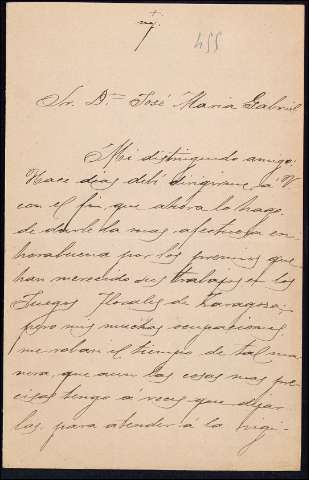 +
455
Sr. Dn. José Maria Gabriel
Mi distinguido amigo:
Hace dias debí dirigirme á V
con el fin que ahora lo hago
de darle la mas afectuosa en-
horabuena por los premios que
han merecido sus trabajos en los
Juegos Florales de Zaragoza;
pero mis muchas ocupaciones
me roban el tiempo de tal ma-
nera, que aun las cosas mas pre-
cisas tengo á veces que dejar
las para atender á la vigi-